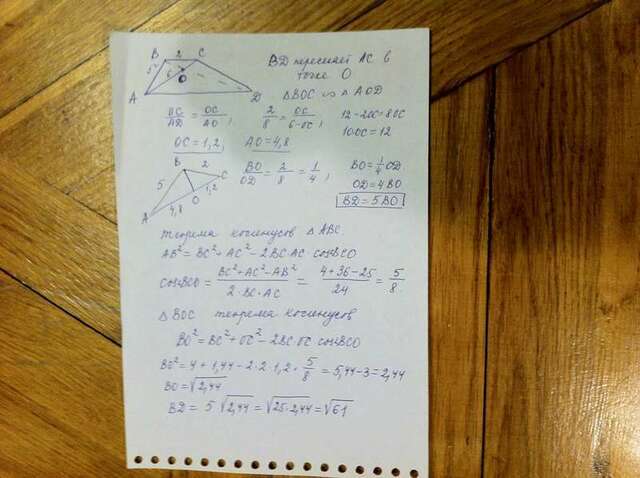 B 2 C
5 6
O
A D
BD пересекает AC в
точке O
△BOC ∽ △AOD
BC/AD = OC/AO; 2/8 = OC/6-OC; 12-2OC=8OC
10OC=12
OC=1,2; AO=4,8.
B 2
5 C
1,2
A 4,8 O
BO/OD = 2/8 = 1/4; BO=1/4 OD.
OD=4BO.
BD=5BO
теорема косинусов △ABC
AB²=BC²+AC²-2BC·AC·cosBCO
cosBCO = BC²+AC²-AB²/2·BC·AC = 4+36-25/24 = 5/8.
△BOC теорема косинусов
BO²=BC²+OC²-2BC·OC cosBCO
BO²=4+1,44-2·2·1,2·5/8=5,44-3=2,44
BO=√2,44
BD = 5√2,44=√25·2,44=√61